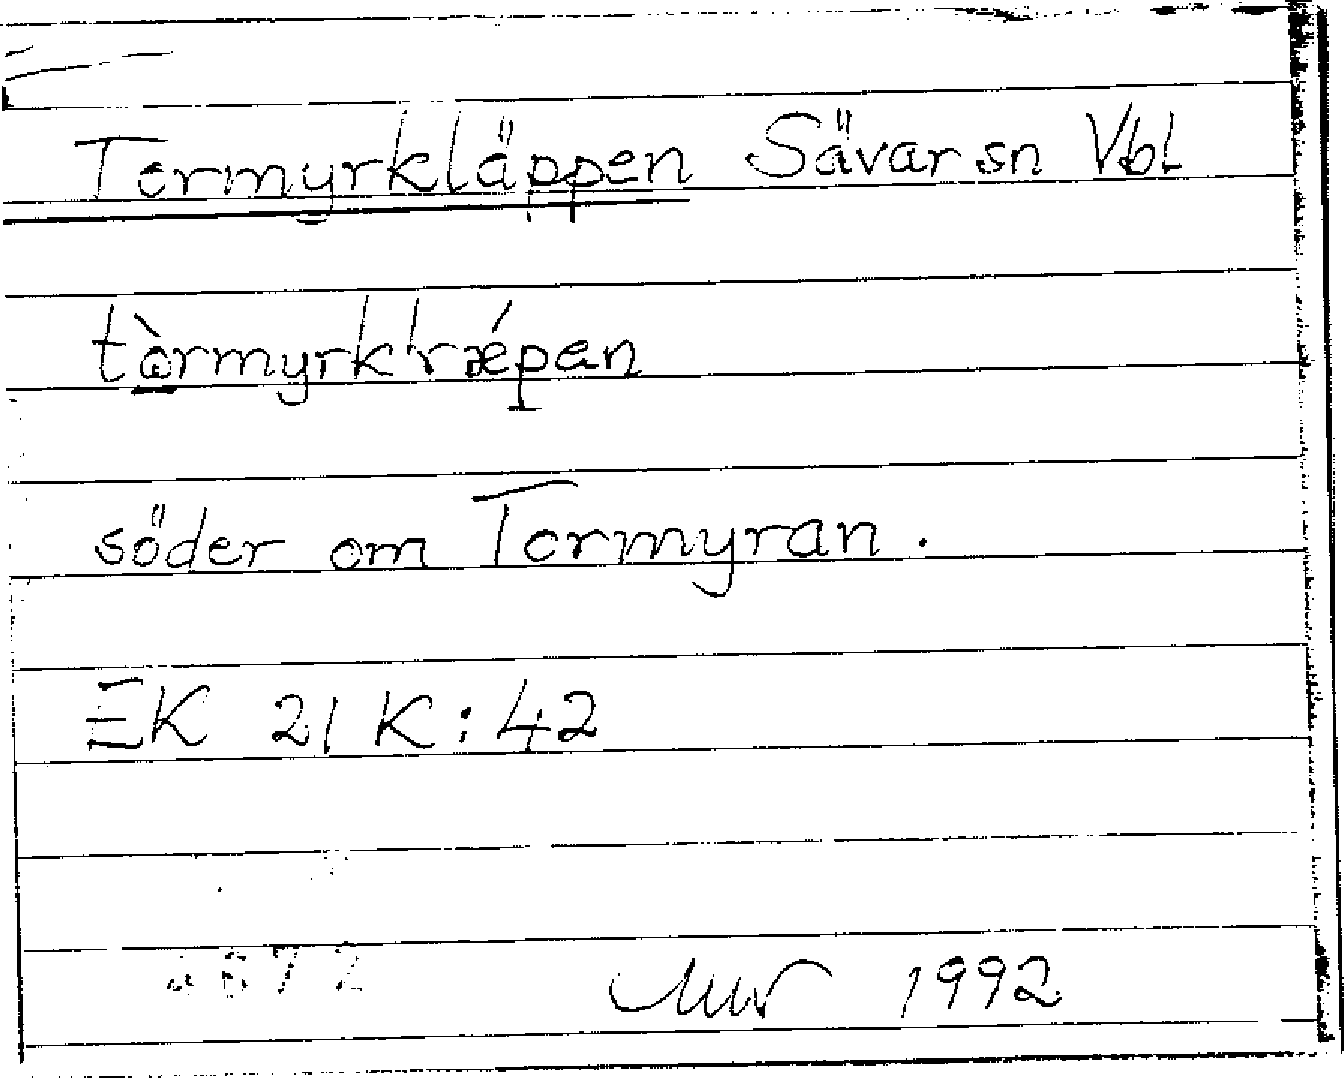 Tormyrkläppen Sävar sn Vbl
tòrmyrkl'rǽpan
söder om Tormyran.
EK 21 K : 42
1992